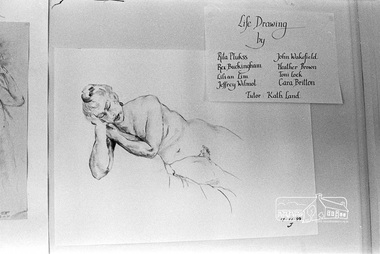 Life Drawing
by
Rita Plukss John Wakefield
Rex Buckingham Heather Brown
Lilian Lim Toni Lock
Jeffrey Wilmot Cara Britton
Tutor Kath Land